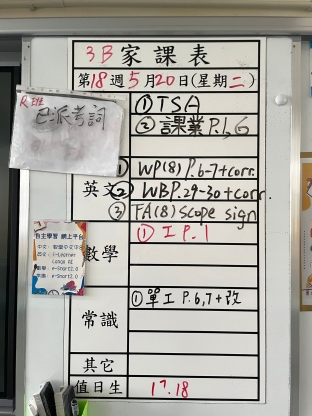 3B家課表
第18週5月20日(星期二)
R班
已派考詞
①TSA
②課業P.1,6
英文
①WP(8) P.6-7+corr.
②WBP.29-30+corr.
③FA(8) scope sign
自主學習 網上平台
數學
①工P.1
常識
①單工P.6,7+改
其它
值日生
17.18